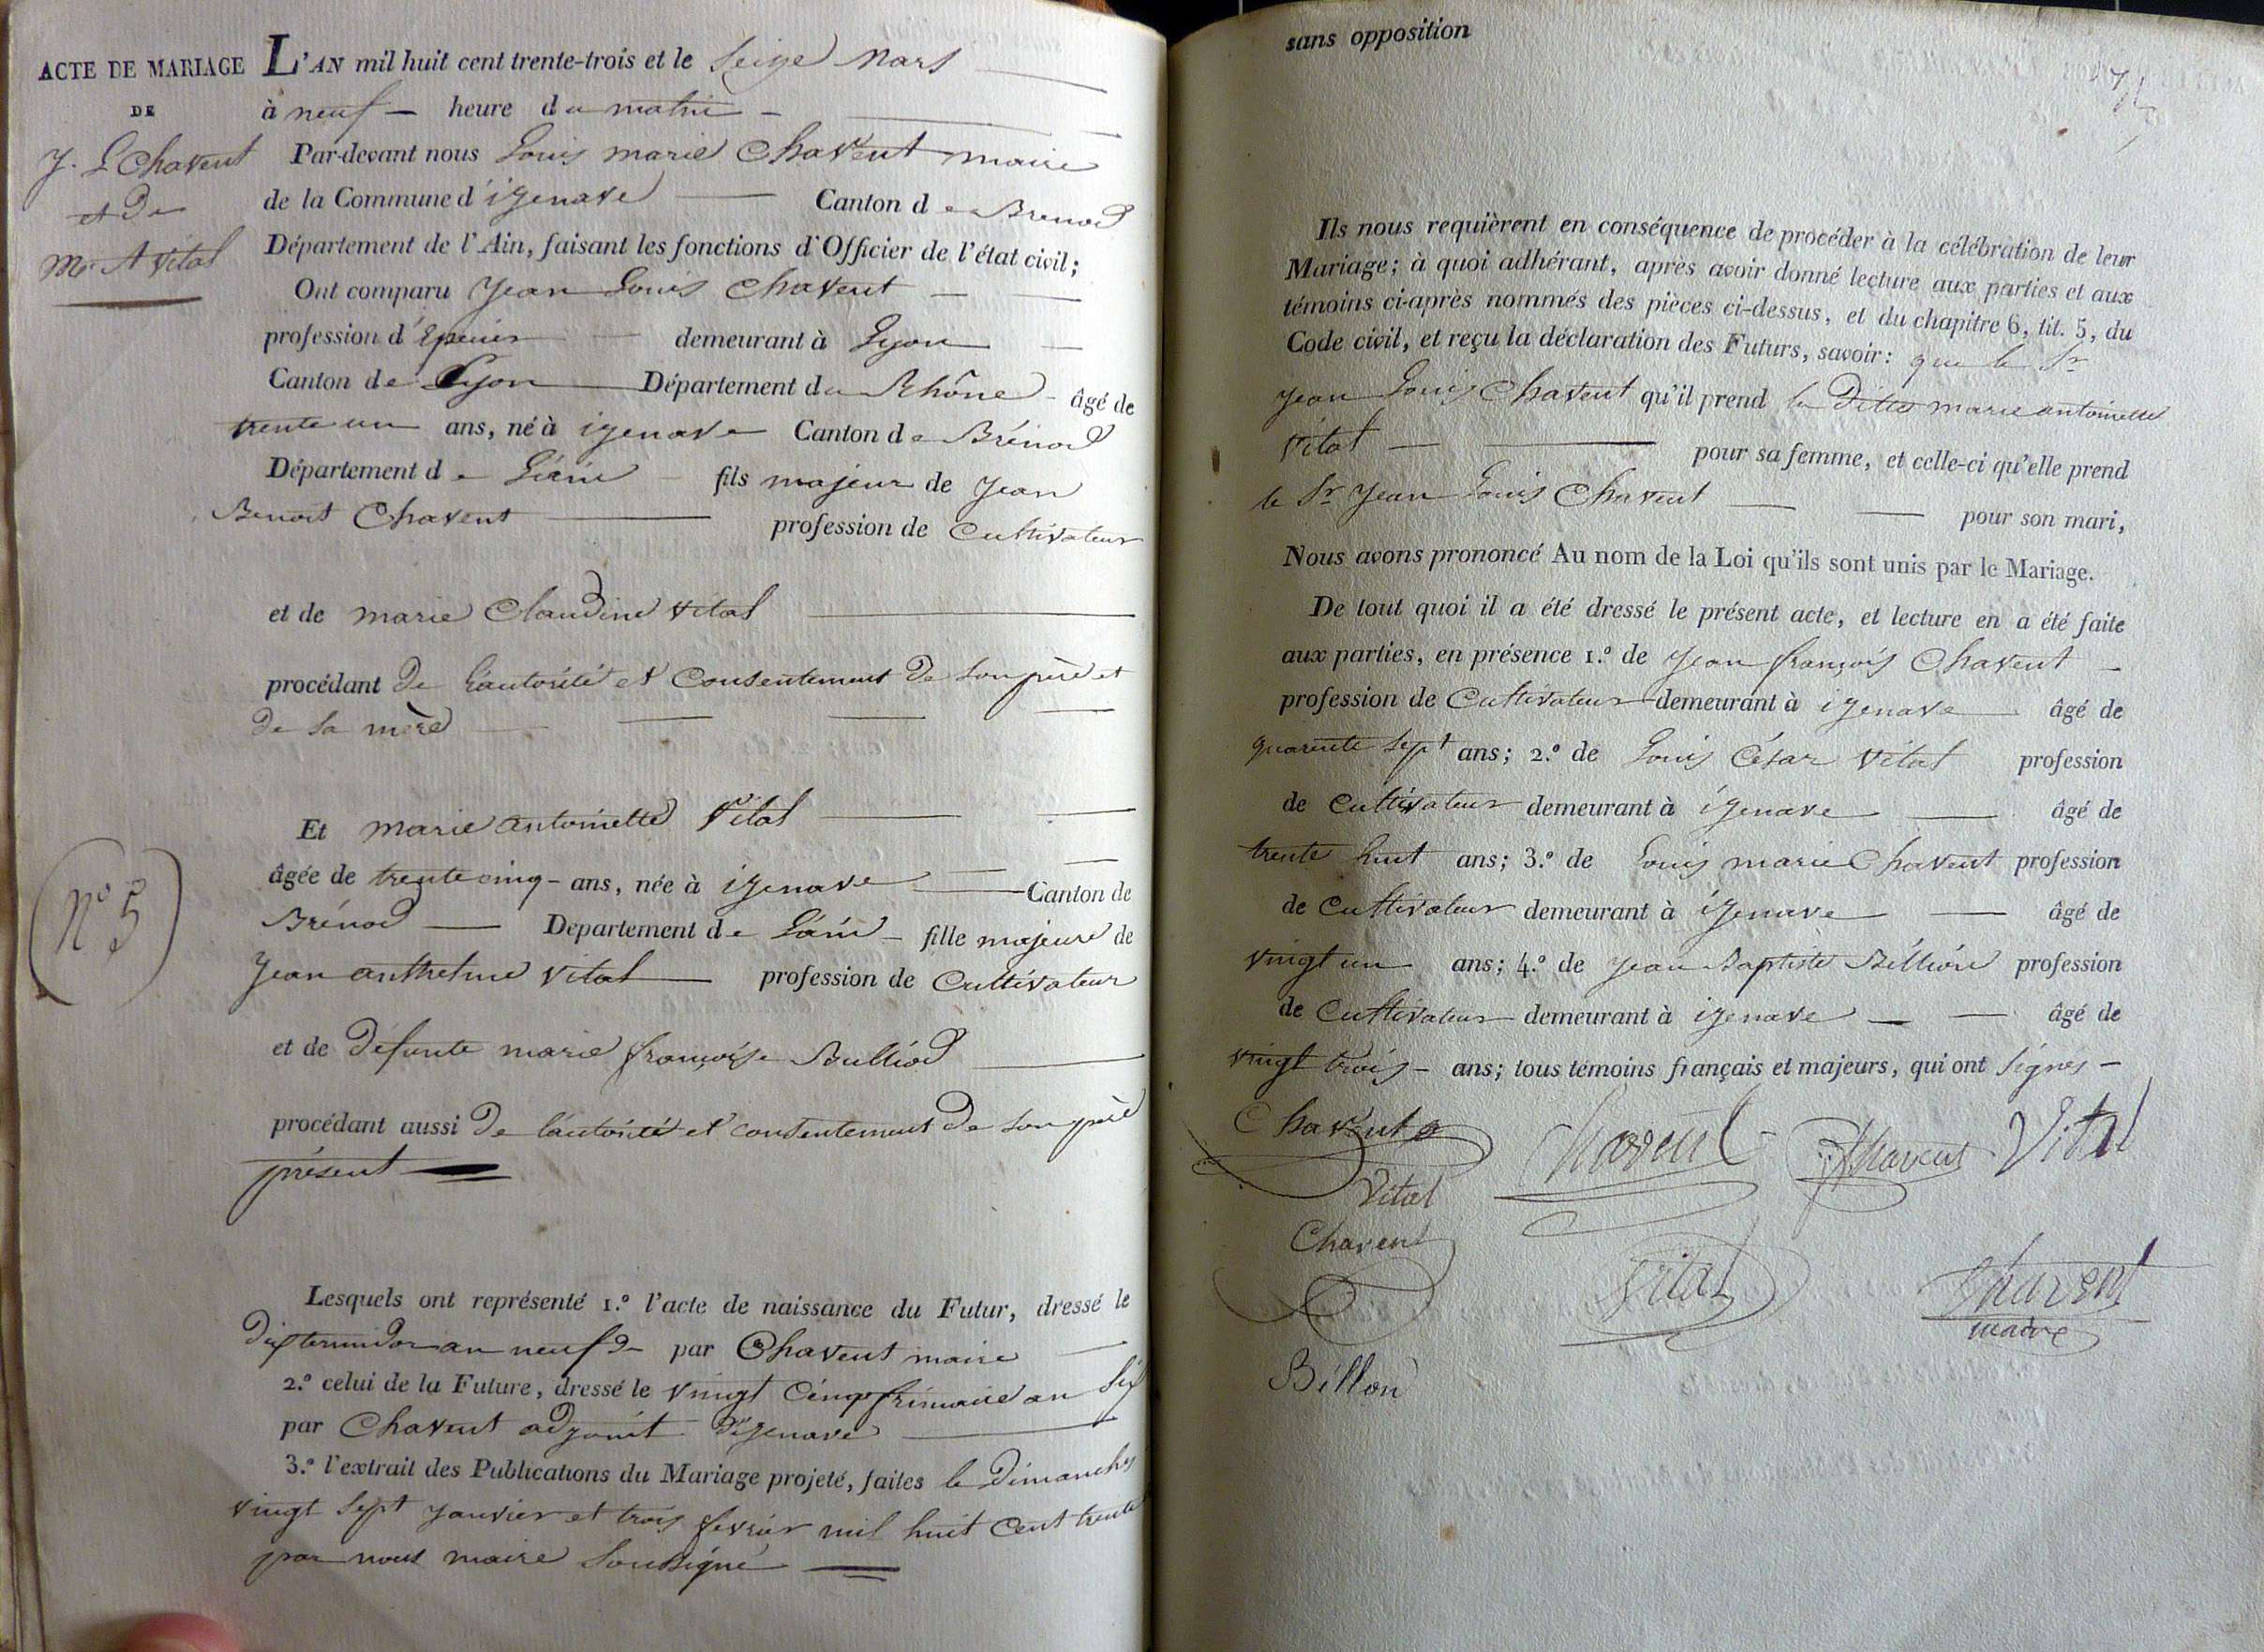 ACTE DE MARIAGE
DE
J. L Chavent
et de
Me. A Vital
N° 5
L'AN mil huit cent trente-trois et le seize Mars
à neuf heure du matin
Par-devant nous Louis marie Chavent maire
de la Commune d'izenave Canton de Brenod
Département de l'Ain, faisant les fonctions d'Officier de l'état civil;
Ont comparu Jean Louis Chavent
profession d'Epicier demeurant à Lyon
Canton de Lyon Département du Rhône âgé de
trente un ans, né à izenave Canton de Brénod
Département de L'ain fils majeur de Jean
Benoit Chavent profession de Cultivateur
et de marie Claudine Vital
procédant de L'autorité et Consentement de son père et
de sa mère
Et marie antoinette Vital
âgée de trente cinq ans, née à izenave Canton de
Brénod Département de L'ain fille majeure de
Jean anthelme Vital profession de Cultivateur
et de défunte marie françoise Bulliod
procédant aussi de l'autorité et consentement de son père
présent
Lesquels ont représenté 1.° l'acte de naissance du Futur, dressé le
dix termidor an neuf par Chavent maire
2.° celui de la Future, dressé le vingt Cinq frimaire an six
par Chavent adjoint d'izenave
3.° l'extrait des Publications du Mariage projeté, faites le dimanches
vingt sept Janvier et trois fevrier mil huit Cent trente
par nous maire Soussigné
sans opposition
Ils nous requièrent en conséquence de procéder à la célébration de leur
Mariage; à quoi adhérant, après avoir donné lecture aux parties et aux
témoins ci-après nommés des pièces ci-dessus, et du chapitre 6, tit. 5, du
Code civil, et reçu la déclaration des Futurs, savoir: que le Sr
Jean Louis Chavent qu'il prend la ditte marie antoinette
Vital pour sa femme, et celle-ci qu'elle prend
le Sr Jean Louis Chavent pour son mari,
Nous avons prononcé Au nom de la Loi qu'ils sont unis par le Mariage.
De tout quoi il a été dressé le présent acte, et lecture en a été faite
aux parties, en présence 1.° de Jean françois Chavent
profession de Cultivateur demeurant à izenave âgé de
quarente sept ans; 2.° de Louis César Vital profession
de Cultivateur demeurant à izenave âgé de
trente huit ans; 3.° de Louis marie Chavent profession
de Cultivateur demeurant à izenave âgé de
vingt un ans; 4.° de Jean Baptiste Billion profession
de Cultivateur demeurant à izenave âgé de
vingt trois ans; tous témoins français et majeurs, qui ont signés
Chavent Chavent Chavent Vital
Vital
Chavent Vital Chavent
maire
Billon